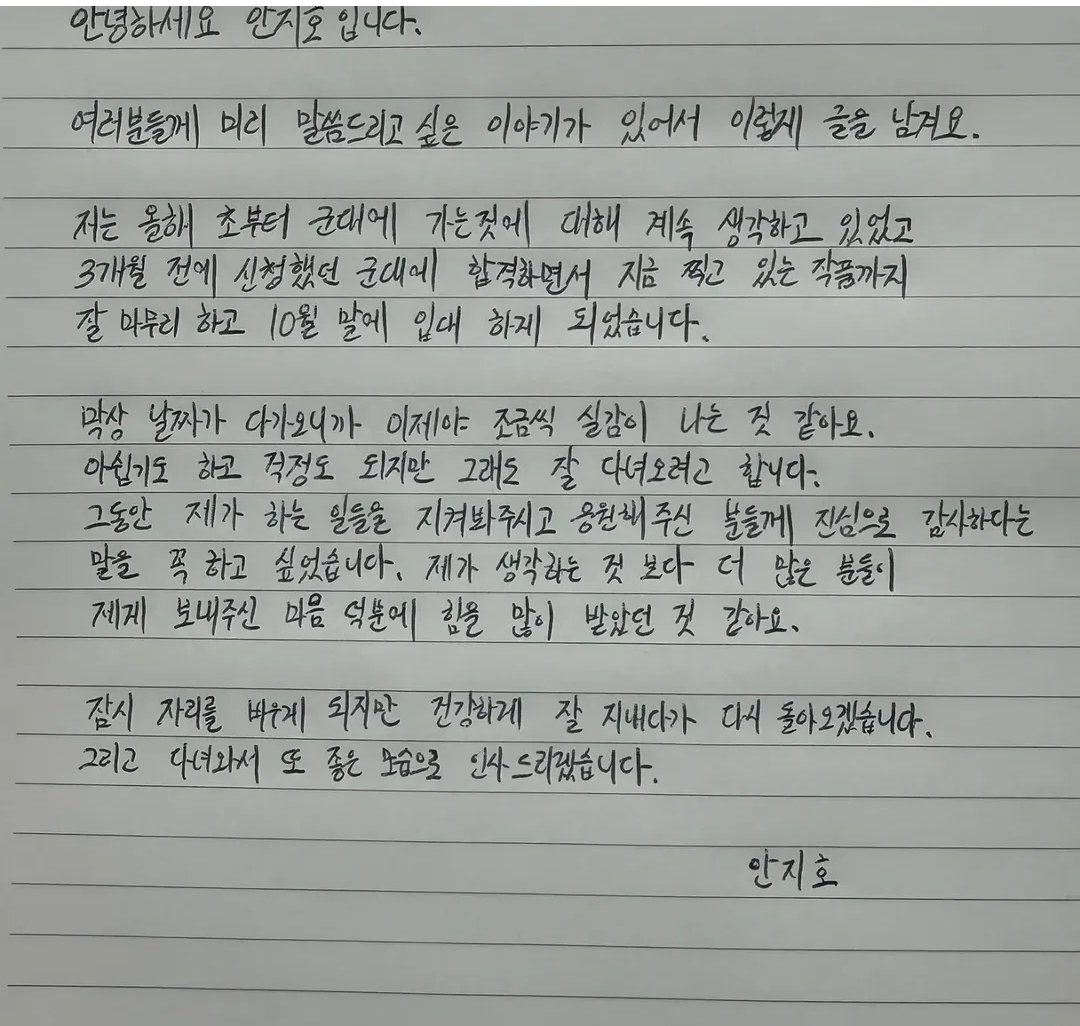 안녕하세요 안지호입니다.
여러분들께 미리 말씀드리고 싶은 이야기가 있어서 이렇게 글을 남겨요.
저는 올해 초부터 군대에 가는것에 대해 계속 생각하고 있었고
3개월 전에 신청했던 군대에 합격하면서 지금 찍고 있는 작품까지
잘 마무리 하고 10월 말에 입대 하게 되었습니다.
막상 날짜가 다가오니까 이제야 조금씩 실감이 나는 것 같아요.
아쉽기도 하고 걱정도 되지만 그래도 잘 다녀오려고 합니다.
그동안 제가 하는 일들을 지켜봐주시고 응원해주신 분들께 진심으로 감사하다는
말을 꼭 하고 싶었습니다. 제가 생각하는 것 보다 더 많은 분들이
제게 보내주신 마음 덕분에 힘을 많이 받았던 것 같아요.
잠시 자리를 비우게 되지만 건강하게 잘 지내다가 다시 돌아오겠습니다.
그리고 다녀와서 또 좋은 모습으로 인사드리겠습니다.
안지호